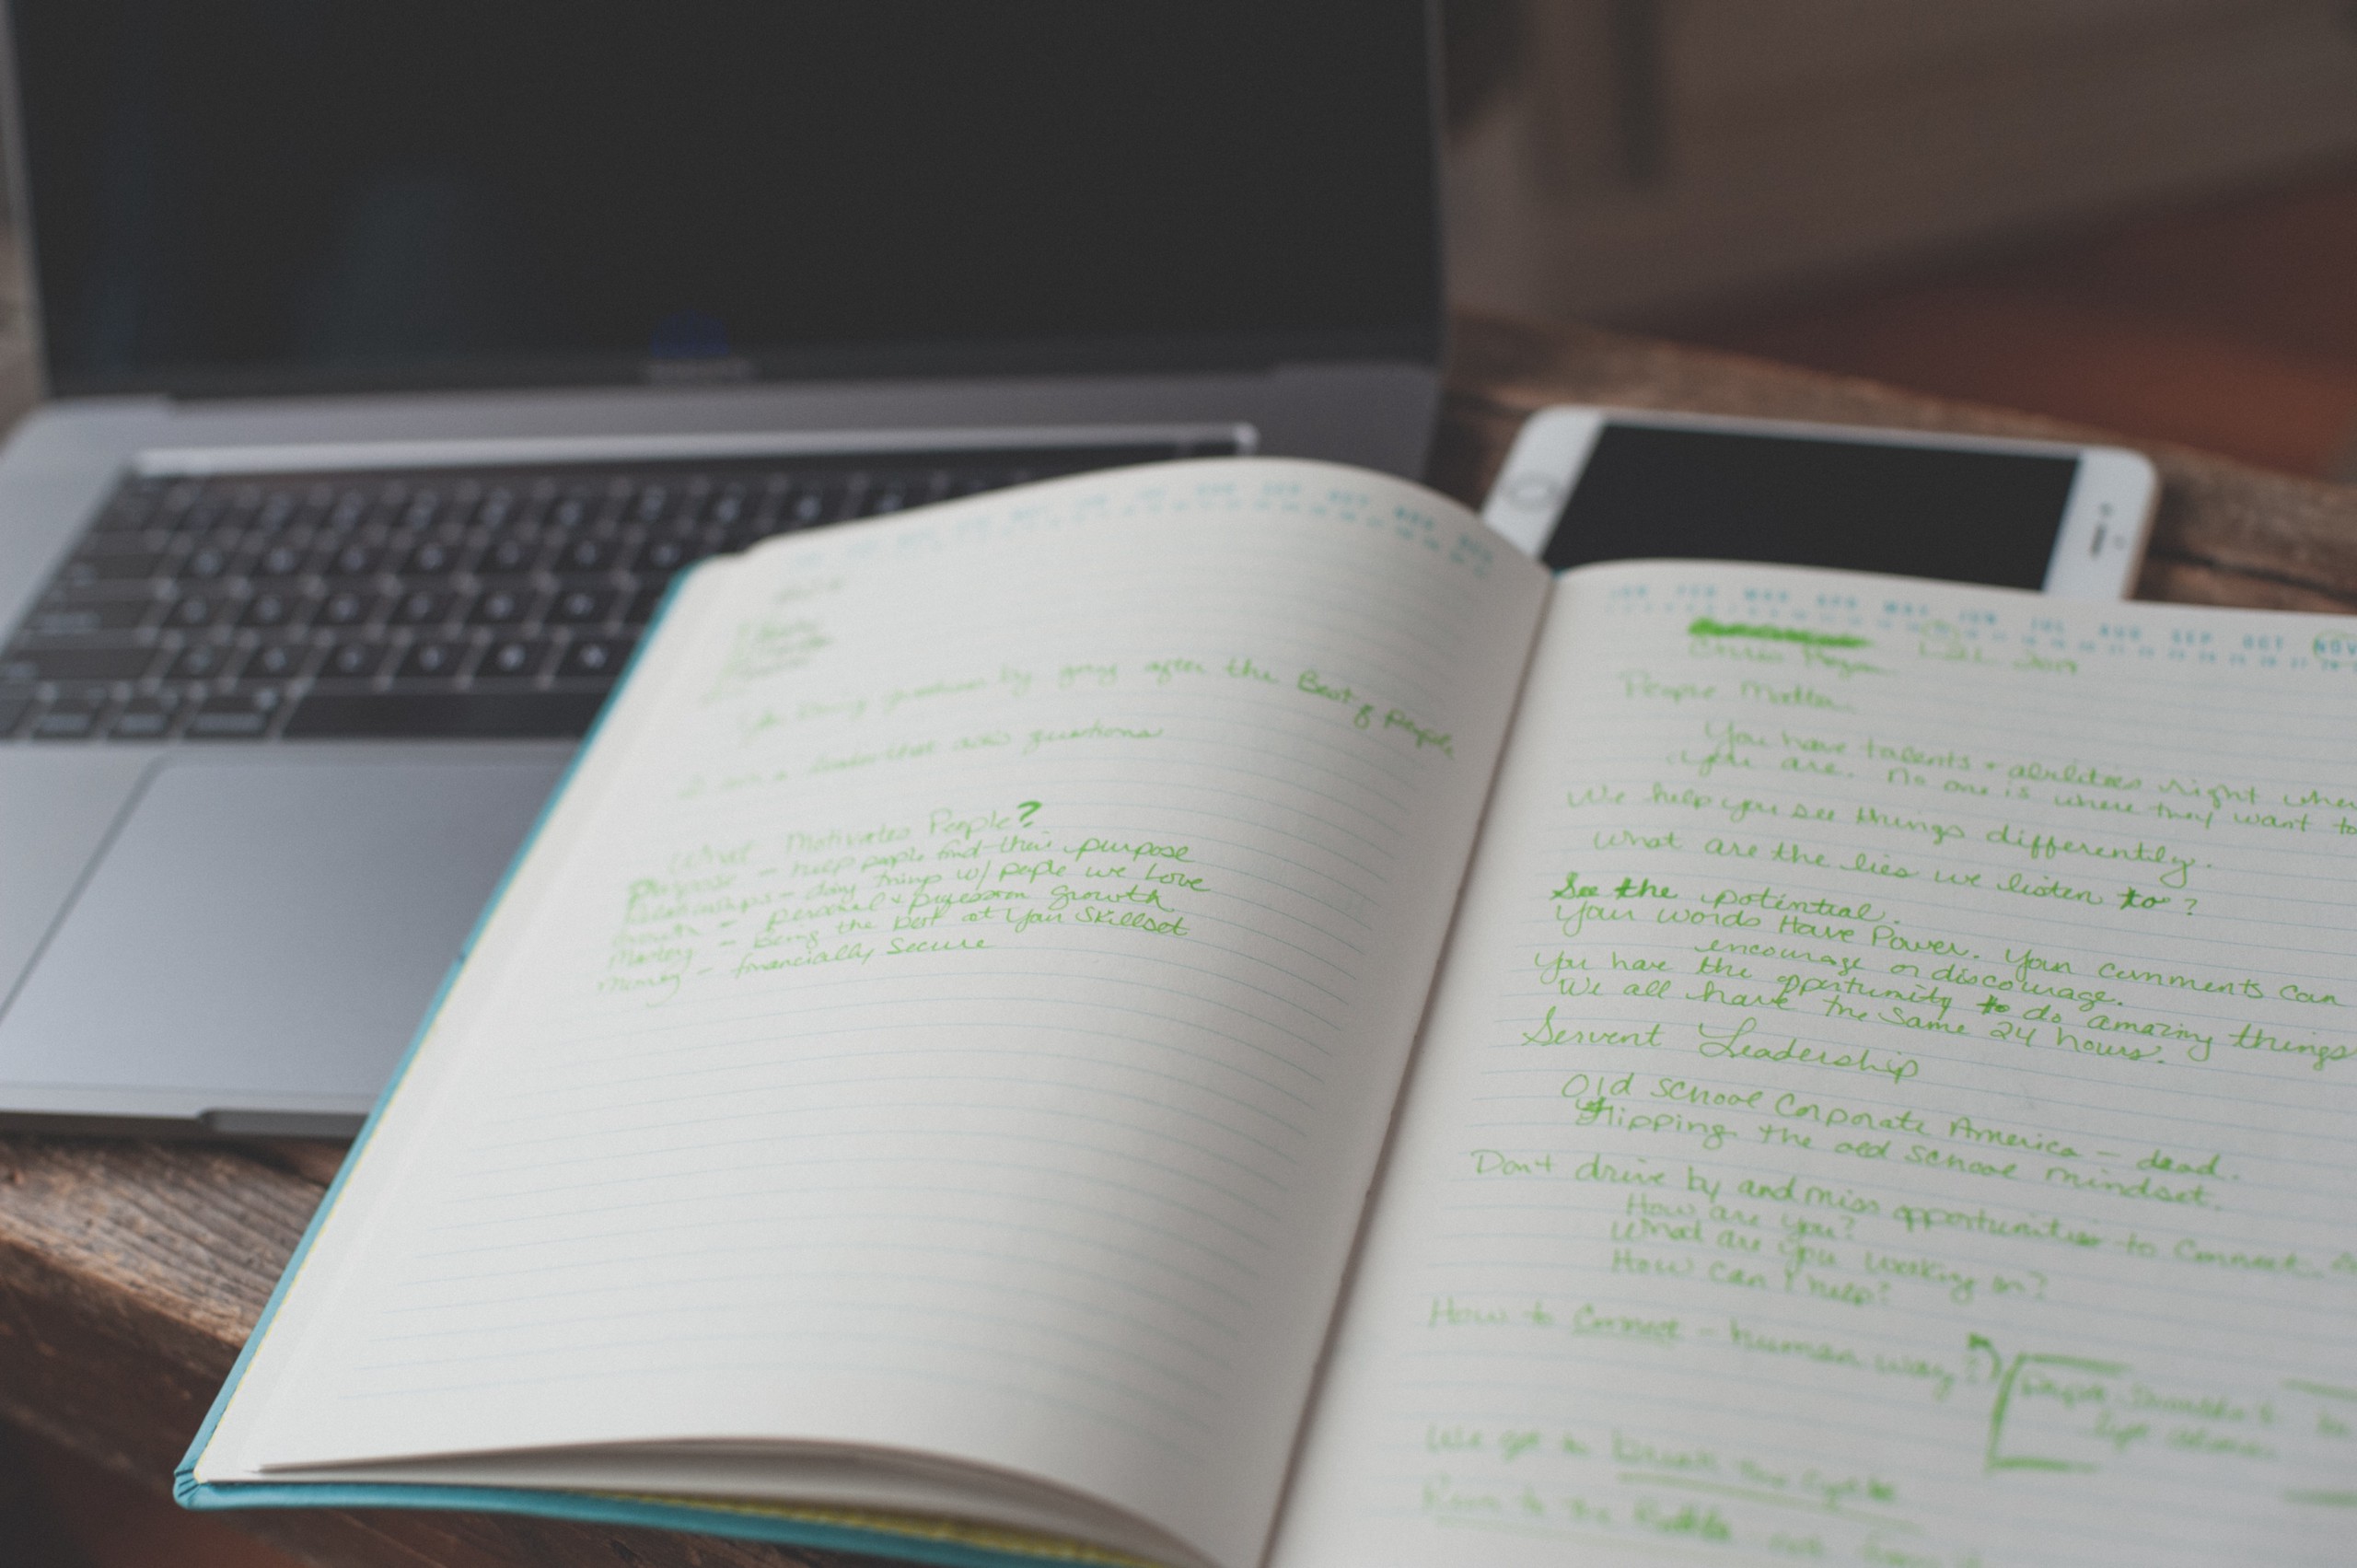 by going after the Best of People
a leader that asks questions
What Motivates People?
Purpose - help people find their purpose
Relationships - doing things w/ people we Love
Growth - personal & profession growth
Mastery - Being the best at your Skillset
Money - financially Secure
JAN FEB MAR APR MAY JUN JUL AUG SEP OCT NOV
People Matter
You have talents + abilities right where
you are. No one is where they want to
We help you see things differently.
What are the lies we listen to?
See the potential.
Your words Have Power. Your comments can
encourage or discourage.
You have the opportunity to do amazing things
We all have the same 24 hours.
Servent Leadership
Old School Corporate America - dead.
Flipping the old school mindset.
Don't drive by and miss opportunities to Connect.
How are you?
What are you working on?
How can I help?
How to Connect - human way
We get to break the cycle